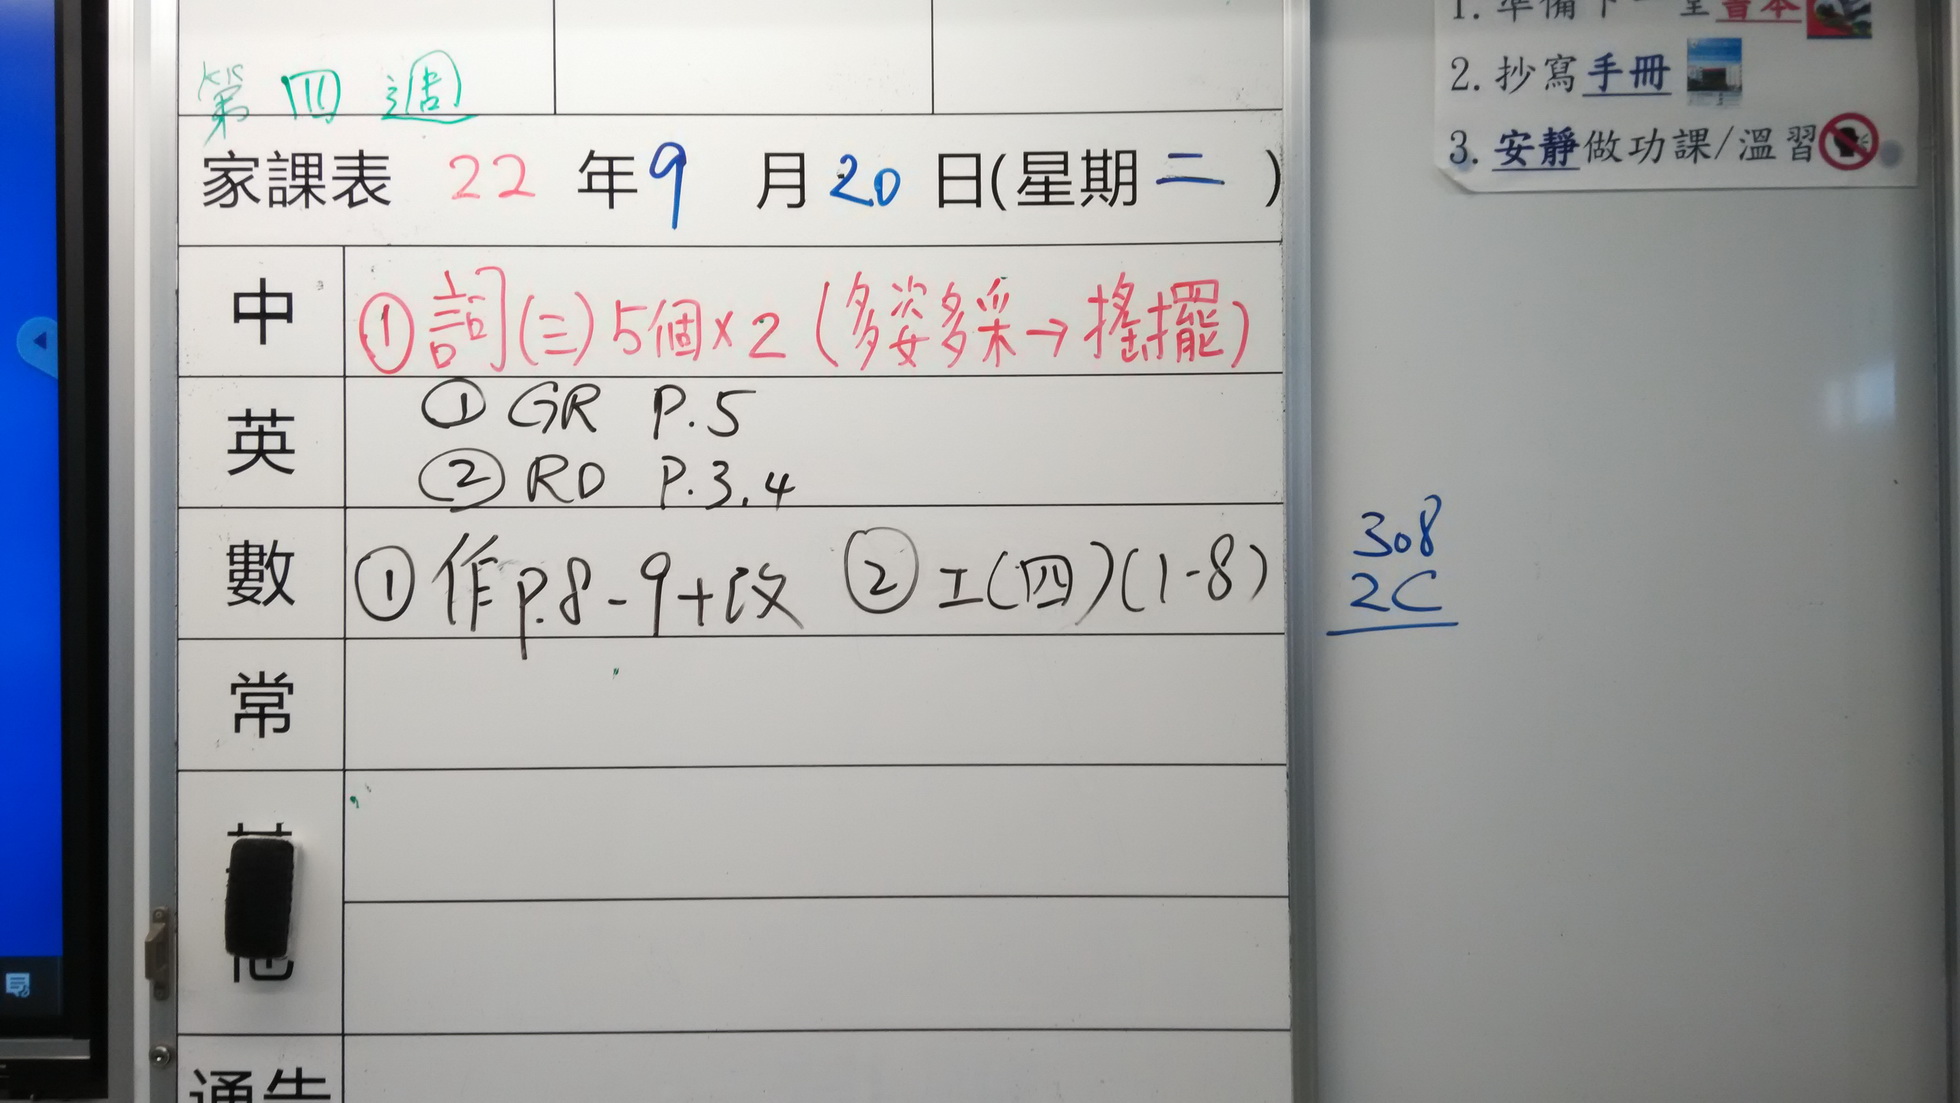 第四週
家課表 22 年 9 月 20 日(星期 二 )
中 ① 詞(三) 5個×2 (多姿多采→搖擺)
英 ① GR P.5
② RD P.3,4
數 ① 作 p.8-9+改 ② 工(四)(1-8)
常
其他
通告
1. 準備下一堂書本
2. 抄寫手冊
3. 安靜做功課/溫習
308
2C